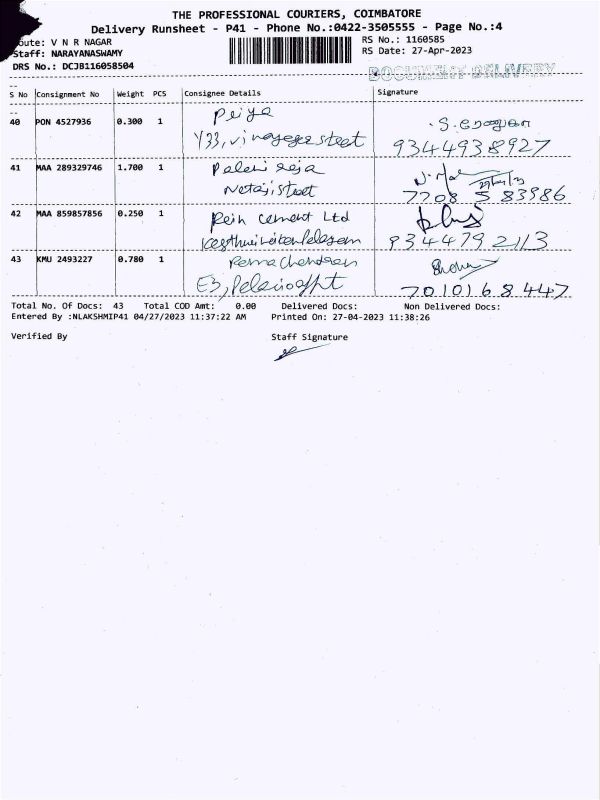 THE PROFESSIONAL COURIERS, COIMBATORE
Delivery Runsheet - P41 - Phone No.:0422-3505555 - Page No.:4
oute: V N R NAGAR
RS No.: 1160585
Staff: NARAYANASWAMY
RS Date: 27-Apr-2023
DRS No.: DCJB116058504
DOCUMENT DELIVERY
S No Consignment No Weight PCS Consignee Details Signature
40 PON 4527936 0.300 1 Priya
Y33, vinayagar street 9344938927
41 MAA 289329746 1.700 1 Palani Raja
Netaji street 7708583986
42 MAA 859857856 0.250 1 Cement Ltd
9344792113
43 KMU 2493227 0.780 1 Rama Chandran
E3, 7010168447
Total No. Of Docs: 43 Total COD Amt: 0.00 Delivered Docs: Non Delivered Docs:
Entered By :NLAKSHMIP41 04/27/2023 11:37:22 AM Printed On: 27-04-2023 11:38:26
Verified By Staff Signature